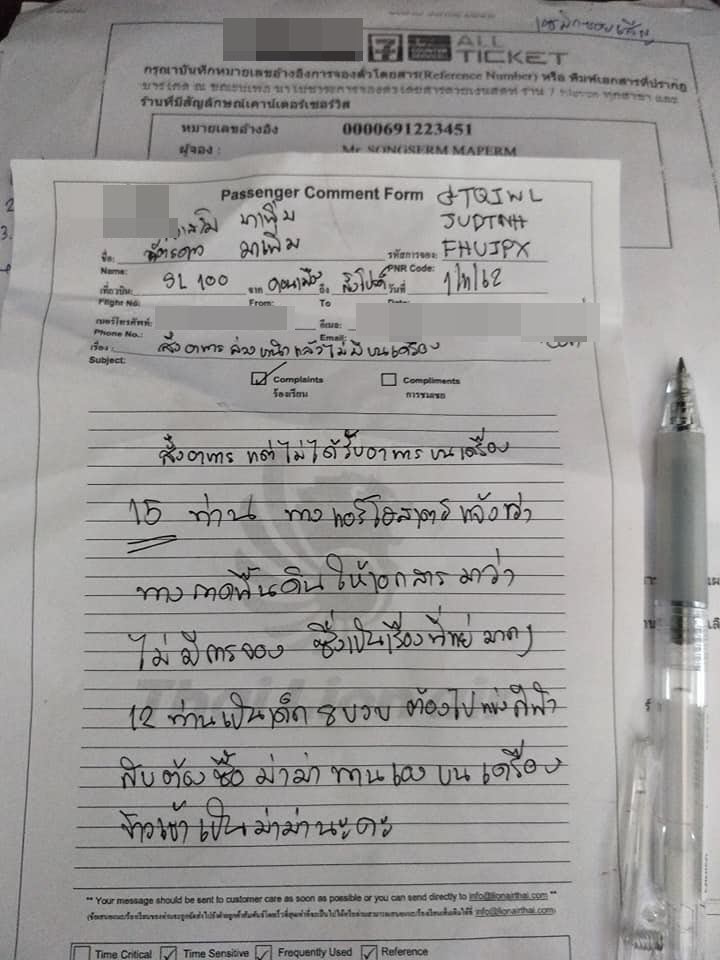 7 ELEVEN COUNTER SERVICE ALL TICKET
กรุณาบันทึกหมายเลขอ้างอิงการจองตั๋วโดยสาร(Reference Number) หรือ พิมพ์เอกสารที่ปรากฏ
ร้านที่มีสัญลักษณ์เคาน์เตอร์เซอร์วิส
หมายเลขอ้างอิง 0000691223451
ผู้จอง : Mr. SONGSERM MAPERM
Passenger Comment Form
JUDTNH
มาเพิ่ม
ชื่อ: ฉัตรดาว มาเพิ่ม รหัสการจอง: FHUJPX
Name: PNR Code:
เที่ยวบิน: SL 100 จาก ดอนเมือง ถึง สิงโปร์ วันที่ 1/11/62
Flight No: From: To Date:
เบอร์โทรศัพท์: อีเมล:
Phone No.: Email:
เรื่อง: สั่งอาหารล่วงหน้าแล้วไม่มีบนเครื่อง
Subject:
Complaints Compliments
ร้องเรียน การชมเชย
สั่งอาหาร แต่ไม่ได้รับอาหารบนเครื่อง
15 ท่าน ทางแอร์โฮสเตสแจ้งว่า
ทางภาคพื้นดินให้เอกสารมาว่า
ไม่มีการจอง ซึ่งเป็นเรื่องที่แย่มากๆ
12 ท่านเป็นเด็ก 8 ขวบ ต้องไปแข่งกีฬา
ต้องซื้อ มาม่า ทานเองบนเครื่อง
ข้าวเช้าเป็นมาม่านะคะ
Thai Lion Air
** Your message should be sent to customer care as soon as possible or you can send directly to info@lionairthai.com **
info@lionairthai.com
Time Critical Time Sensitive Frequently Used Reference